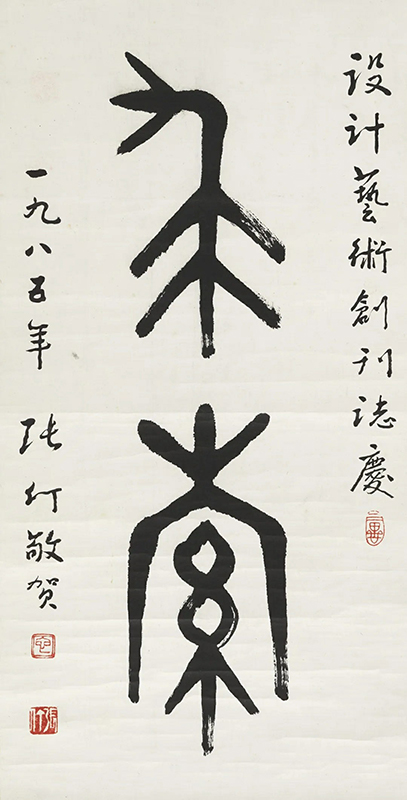 设计藝術創刊誌慶
求索
一九八五年 张仃敬贺